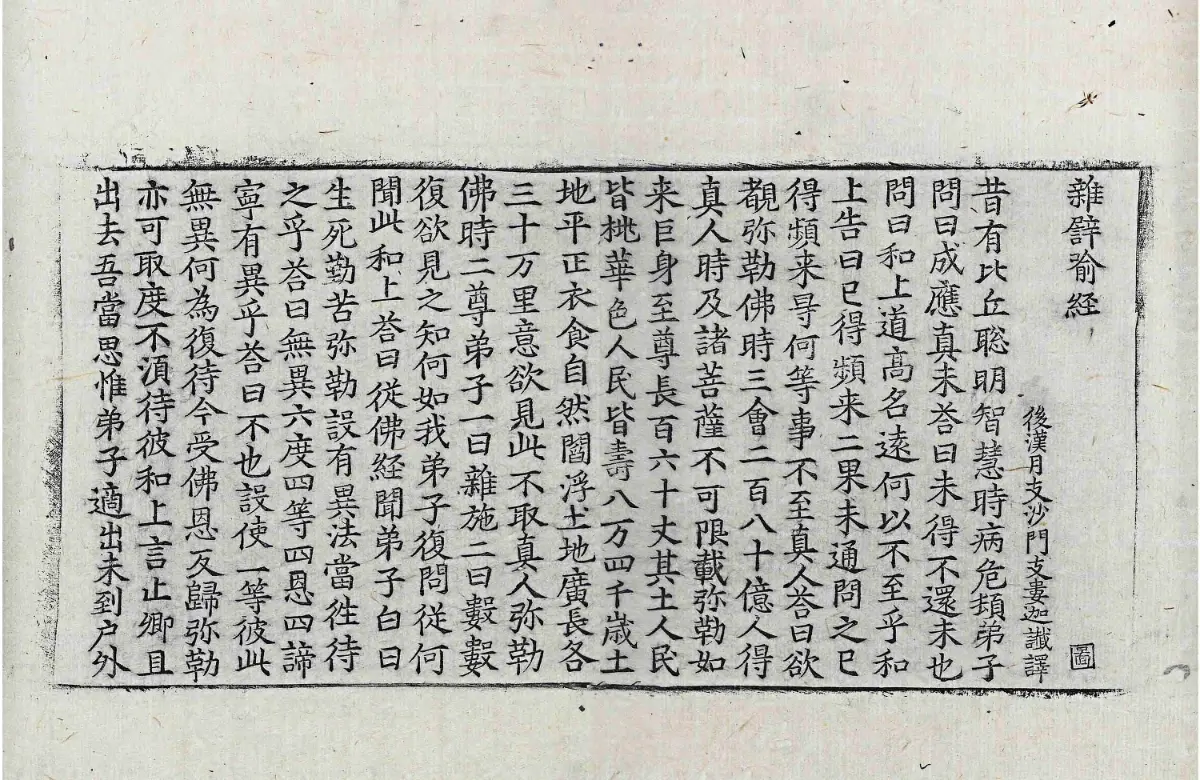 雜譬喻經 圖
後漢月支沙門支婁迦讖譯
昔有比丘聡明智慧時病危頓弟子
問曰成應真未荅曰未得不還未也
問曰和上道髙名逺何以不至乎和
上告曰已得頻来二果未通問之已
得頻来㝵何等事不至真人荅曰欲
覩弥勒佛時三會二百八十億人得
真人時及諸菩薩不可限載弥勒如
来巨身至尊長百六十丈其土人民
皆桃華色人民皆壽八万四千歳土
地平正衣食自然閻浮土地廣長各
三十万里意欲見此不取真人弥勒
佛時二尊弟子一曰雜施二曰數數
復欲見之知何如我弟子復問從何
聞此和上荅曰從佛経聞弟子白曰
生死勤苦弥勒設有異法當徃待
之乎荅曰無異六度四等四恩四諦
寧有異乎荅曰不也設使一等彼此
無異何為復待今受佛恩反歸弥勒
亦可取度不湏待彼和上言止卿且
出去吾當思惟弟子適出未到户外